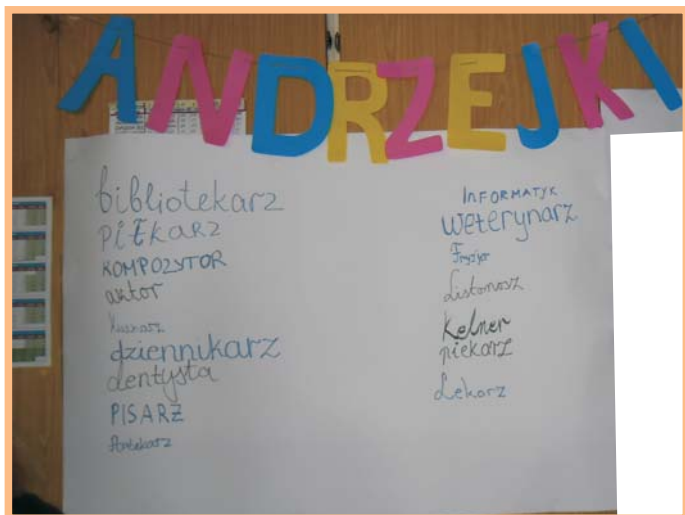 ANDRZEJKI
bibliotekarz
PIŁKARZ
KOMPOZYTOR
aktor
dziennikarz
dentysta
PISARZ
INFORMATYK
Weterynarz
Fryzjer
Listonosz
Kelner
piekarz
Lekarz